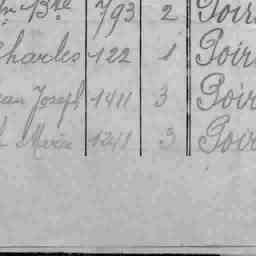 n Bte 793 2 Poir
Charles 122 1 Poir
ean Joseph 1411 3 Poir
Marie 1241 3 Poir